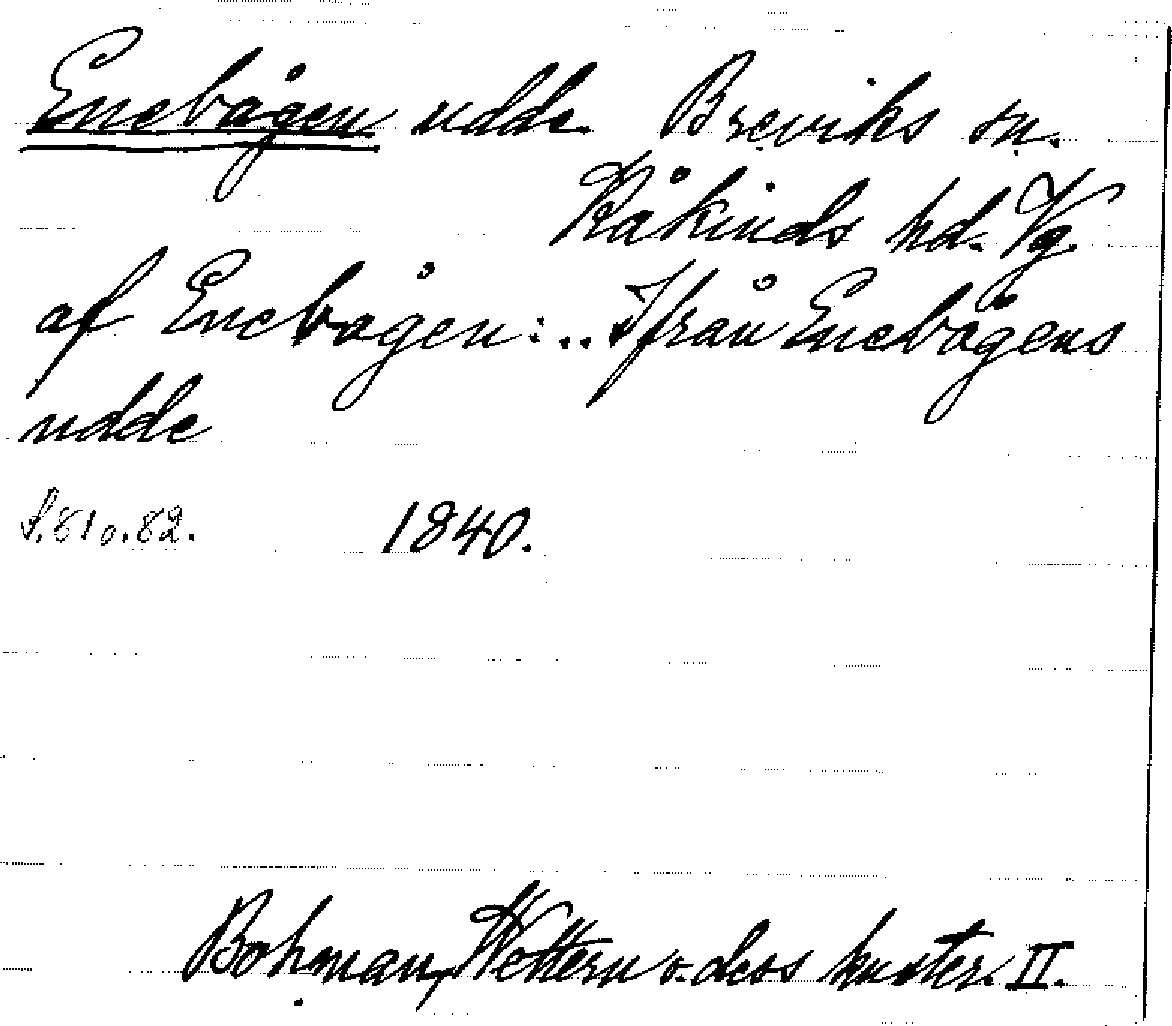 Enebågen udde Breviks sn.
Kåkinds hd. Vg.
af Enebågen: .. Ifrån Enebågens
udde
S. 81 o. 82. 1840.
Bohman, Wettern o. dess kuster. II.